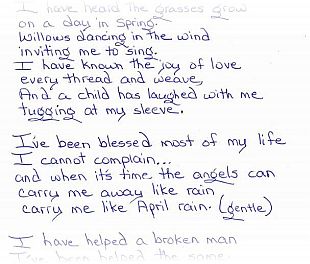 I have heard the grasses grow
on a day in Spring.
Willows dancing in the wind
inviting me to sing.
I have known the joy of love
every thread and weave,
And a child has laughed with me
tugging at my sleeve.
I've been blessed most of my life
I cannot complain...
and when it's time the angels can
carry me away like rain
carry me like April rain. (gentle)
I have helped a broken man
I've been helped the same.